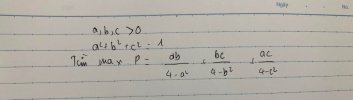 Ngày No.
a, b, c > 0
a² + b² + c² = 1
Tìm max P = ab/(4-a²) + bc/(4-b²) + ac/(4-c²)